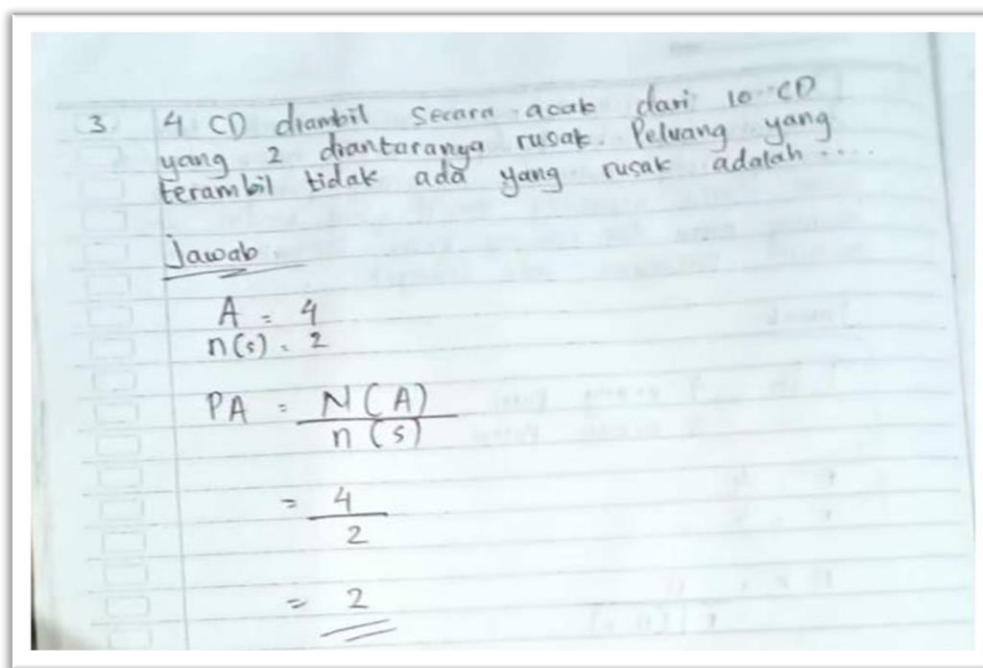 3 4 CD diambil secara acak dari 10 CD
yang 2 diantaranya rusak. Peluang yang
terambil tidak ada yang rusak adalah ....
Jawab
A = 4
n(s) = 2
PA = N(A)
n(s)
= 4
2
= 2